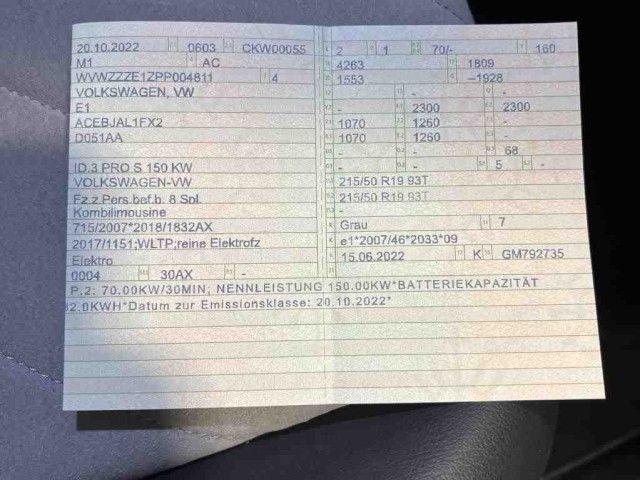 20.10.2022 0603 CKW00055
M1 AC
WVWZZZE1ZPP004811 4
VOLKSWAGEN, VW
E1
ACEBJAL1FX2
D051AA
ID.3 PRO S 150 KW
VOLKSWAGEN-VW
Fz.z.Pers.bef.b. 8 Spl.
Kombilimousine
715/2007*2018/1832AX
2017/1151;WLTP;reine Elektrofz
Elektro
0004 30AX -
2 1 70/- 160
4263 1809
1553 –1928
- - -
- 2300 2300
1070 1260 -
1070 1260 -
- - 68
- - 5 -
215/50 R19 93T
215/50 R19 93T
-
Grau 7
e1*2007/46*2033*09
15.06.2022 K GM792735
P.2: 70.00KW/30MIN; NENNLEISTUNG 150.00KW*BATTERIEKAPAZITÄT
82.0KWH*Datum zur Emissionsklasse: 20.10.2022*